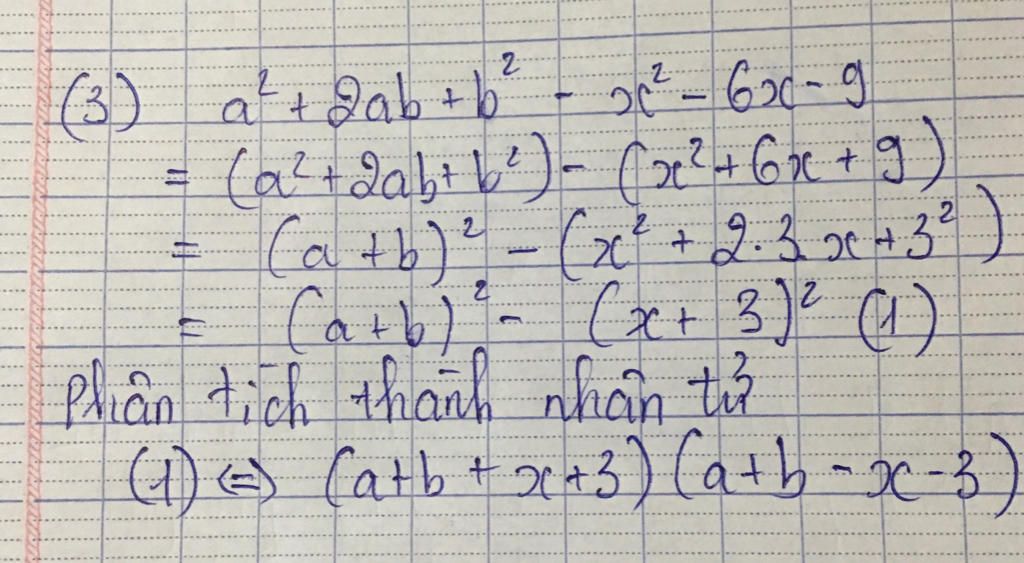 (3) a² + 2ab + b² - x² - 6x - 9
= (a² + 2ab + b²) - (x² + 6x + 9)
= (a + b)² - (x² + 2.3.x + 3²)
= (a + b)² - (x + 3)² (1)
Phân tích thành nhân tử
(1) ⇔ (a + b + x + 3) (a + b - x - 3)